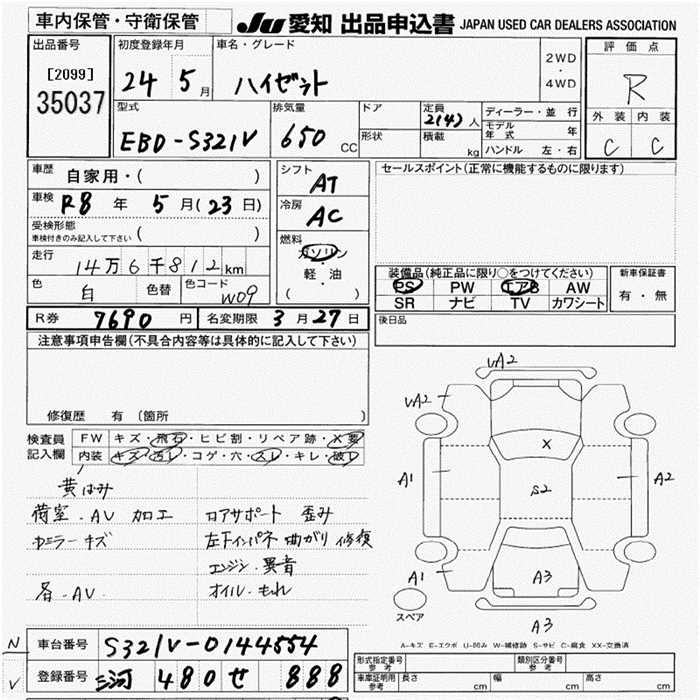 車内保管・守衛保管
JU 愛知 出品申込書 JAPAN USED CAR DEALERS ASSOCIATION
出品番号
[2099]
35037
初度登録年月
24 5月
車名・グレード
ハイゼット
2WD
・
4WD
評価点
R
外装 内装
C C
型式
EBD-S321V
排気量
650 CC
ドア
形状
定員
2(4)人
積載
kg
ディーラー・並行
モデル年式 年
ハンドル 左・右
車歴 自家用・( )
車検 R8年 5月(23日)
受検形態
車検付きのみ記入して下さい ( )
走行
14万6千812km
色 白 色替 色コード W09
シフト
AT
冷房
AC
燃料
ガソリン
・
軽・油
( )
セールスポイント(正常に機能するものに限ります)
装備品(純正品に限り○をつけてください)
PS PW エアB AW
SR ナビ TV カワシート
新車保証書
有・無
R券 7690円 名変期限 3月27日
後日品
注意事項申告欄(不具合内容等は具体的に記入して下さい)
修復歴 有 (箇所
検査員
記入欄
FW キズ・飛石・ヒビ割・リペア跡・X要
内装 キズ・汚レ・コゲ・穴・スレ・キレ・破レ
黄ばみ
荷室・AV 加工 ロアサポート 歪み
ミラーキズ 左下インパネ 曲がり 修復
エンジン・異音
各・AV オイル・もれ
VA2
VA2
X
A1
S2
A2
A1
A3
スペア
A3
A-キズ E-エクボ U-凹み W-補修跡 S-サビ C-腐食 XX-交換済
N 車台番号 S321V-0144554
V 登録番号 三河 480 せ 888
形式指定番号
参考
類別区分番号
参考
車庫証明用
参考
長さ cm 幅 cm 高さ cm